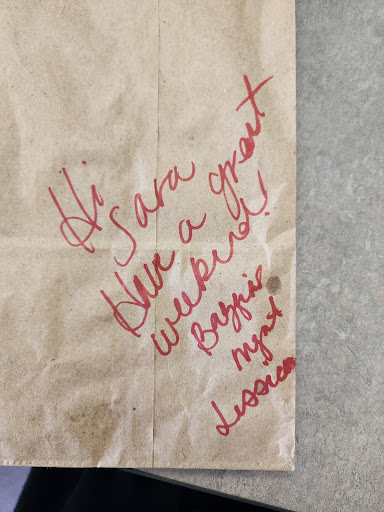 Hi
Sara
Have a great
weekend!
Mgmt
Jessica